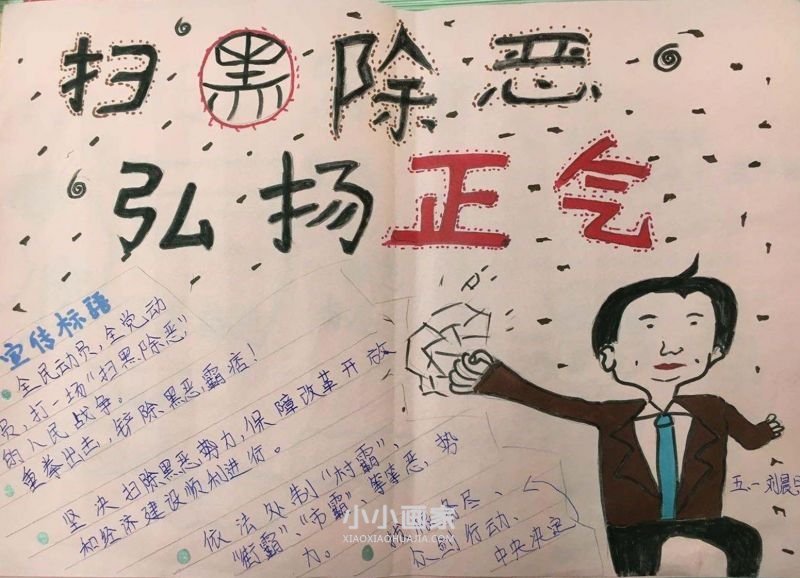 扫黑除恶
弘扬正气
宣传标语
全民动员,全党动
员,打一场“扫黑除恶”
的人民战争。
重拳出击,铲除黑恶霸痞!
坚决扫除黑恶势力,保障改革开放
和经济建设顺利进行。
依法处制“村霸”、
“街霸”、“市霸”等等恶势
力。
务尽、
行动、
中央决定
五.一刘晨
小小画家
XIAOXIAOHUAJIA.COM